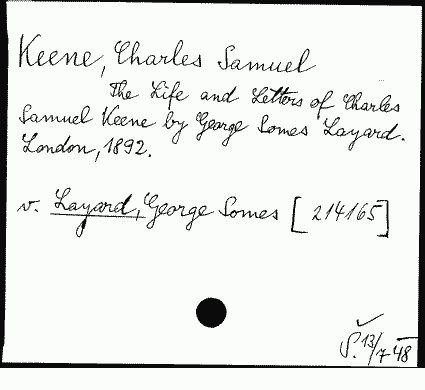 Keene, Charles Samuel
The Life and Letters of Charles
Samuel Keene by George Somes Layard.
London, 1892.
v. Layard, George Somes [214165]
13/7 48